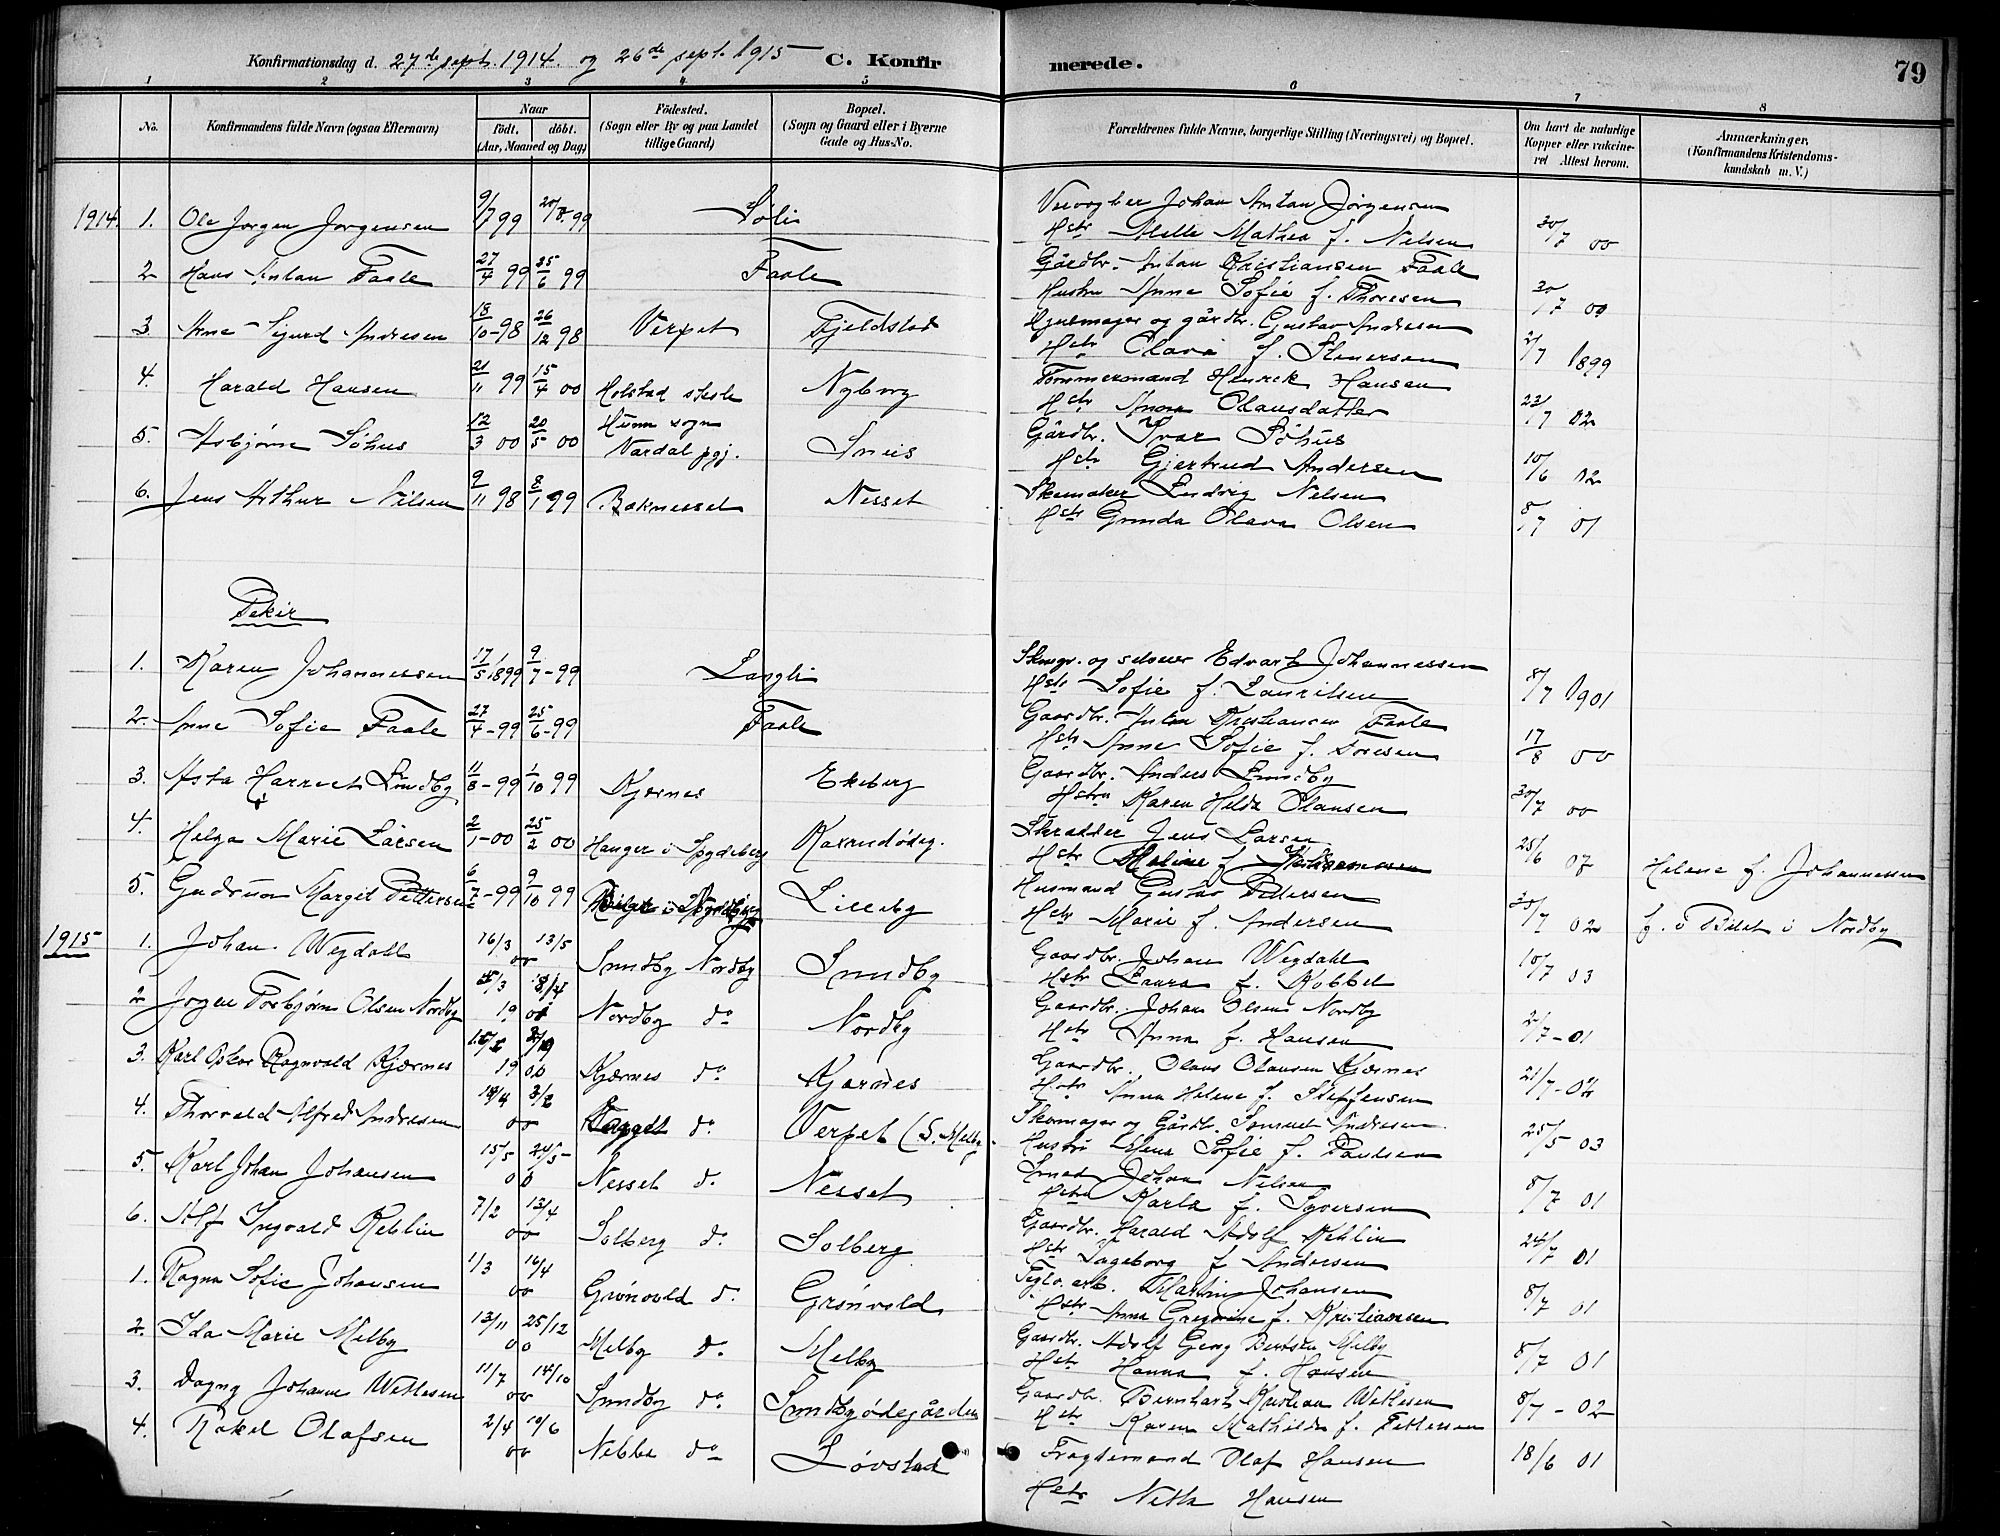 Konfirmationsdag d. 27de sept. 1914. og 26de sept. 1915 C. Konfirmerede. 79
1 2 3 4 5 6 7 8
No. Konfirmandens fulde Navn (ogsaa Efternavn) Naar födt. döbt. (Aar, Maaned og Dag) Födested. (Sogn eller By og paa Landet tillige Gaard) Bopæl. (Sogn og Gaard eller i Byerne Gade og Hus-No. Forældrenes fulde Navne, borgerlige Stilling (Næringsvei) og Bopæl. Om havt de naturlige Kopper eller vakcineret Attest herom. Anmærkninger, (Konfirmandens Kristendomskundskab m. V.)
1914. 1. Ole Jørgen Jørgensen 9/7 99 20/8 99 Søli Johan Antan Jørgensen
Hstr Mathea f. Nelsen 30/7 00
2 Hans Antan Faale 27/4 99 25/6 99 Faale Gårdbr. Antan Kristiansen Faale
Hustru Anne Sofie f. Thoresen 30/7 00
3 Arne Sigurd Andresen 18/10-98 26/12 98 Verpet Fjeldstad Hjulmager og gårdbr. Gustav Andresen
Hstr Olava f. Stenersen 2/7 1899
4. Harald Hansen 21/11 99 15/4 00 Holstad Nyborg Tømmermand Henrik Hansen
Hstr Anna Olausdatter 22/7 02
5. Asbjørn Søhus 12/3 00 20/5 00 Hunn sogn Vardal pgj. Sneis Gårdbr. Ivar Søhus
Hstr Gjertrud Andersen 10/6 02
6. Jens Arthur Nilsen 9/11 98 8/1 99 Baknesset Nesset Skomaker Ludvig Nelsen
Hstr Gunda Olava Olsen 8/7 01
Pekir
1. Karen Johannessen 17/5 1899 9/7-99 Langli Skrogr. og selveier Edvart Johannessen
Hstr Sofie f. Lauritsen 8/7 1901
2. Anne Sofie Faale 27/4-99 25/6-99 Faale Gaardbr. Antan Kristiansen Faale
Hstr Anne Sofie f. Toresen 17/8 00
3. Asta Harriet Lundby 11/8-99 1/10 99 Kjernes Ekeberg Gaardbr. Anders Lundby
Hstru Karen Hilda Olausen 30/7 00
4. Helga Marie Larsen 2/1-00 25/2 00 Hanger i Spydeberg Karendødeg. Skrædder Jens Larsen
Hstr f. Johannessen 25/6 07 Helene f. Johannessen
5. Gudrun Margit Pettersen 6/7-99 9/10 99 Lilleby Husmand Gustav Pettersen
Hstr Marie f. Andersen 30/7 02 f. i Bilet i Nordby
1915 1. Johan Wegdahl 16/3 13/5 00 Sundby Nordby Sundby Gaardbr. Johan Wegdahl
Hstr Laura f. Kobbel 10/7 03
2 Jørgen Torbjørn Olsen Nordby 5/3 8/4 1900 Nordby do Nordby Gaardbr. Johan Olsen Nordby
Hstr Anna f. Hansen 2/7-01
3. Karl Oskar Ragnvald Kjærnes 1900 Kjærnes do Kjærnes Gaardbr. Olaus Olausen Kjærnes
Hstr Anna Helene f. Steffensen 21/7-02
4. Thorvald Alfred Andresen 00 Verpet do Verpet (S. Melby Skomager og Gårdbr. Samuel Andresen
Hustru Mena Sofie f. Paulsen 25/5 03
5. Karl Johan Johansen 15/5 24/5 00 Nesset do Nesset Smed Johan Nilsen
Hstru Karla f. Syversen 8/7 01
6. Alf Ingvald Rehlin 7/2 13/4 00 Solberg do Solberg Gaardbr. Harald Adolf Rehlin
Hstr Ingeborg f Andersen 24/7 01
1. Ragna Sofie Johansen 1/3 16/4 00 Grønvold do Grønvold Teglv. arb. Martin Johansen
Hstr Anna Gregorine f. Kristiansen 8/7 01
2. Ida Marie Melby 13/11 25/12 00 Melby do Melby Gaardbr. Adolf Georg Berntsen Melby
Hstr Hanna f. Hansen 8/7 01
3. Dagny Johanne Wettesen 11/7 14/10 00 Sundby do Sundbyødegården Gaardbr. Bernhart Kristian Wettesen
Hstr Karen Mathilde f. Pettersen 8/7-02
4. Rakel Olafsen 2/4 10/6 00 Nebba do Løvstad Fragtemand Olaf Hansen 18/6 01
Hstr Netta Hansen